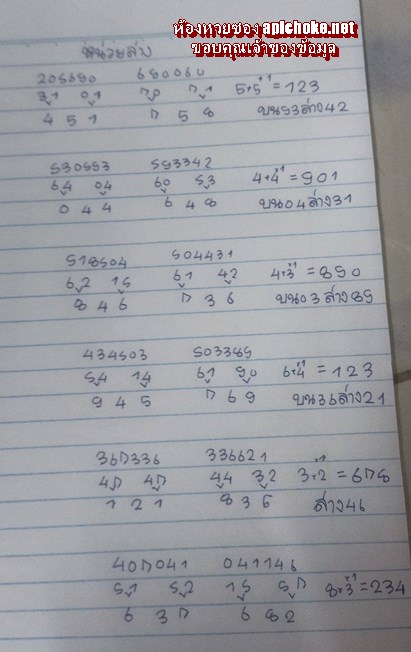 ห้องหวยซอง apichoke.net
ขอบคุณเจ้าของข้อมูล
หน่วยล่าง
205690 690060
31 01 70 71 5+5+1 =123
4 5 1 7 5 8 บน93ล่าง42
930993 593342
64 04 60 53 4+4+1 =901
0 4 4 6 4 8 บน04ล่าง31
918504 504431
62 15 61 42 4+3+1 =890
8 4 6 7 3 6 บน03ล่าง89
434503 503389
54 14 61 90 6+4+1 =123
9 4 5 7 6 9 บน36ล่าง21
367336 336621
47 47 44 32 3+2+1 =678
1 2 1 8 3 5 ล่าง46
407041 041146
51 52 15 57 8+3+1 =234
6 3 7 6 8 2